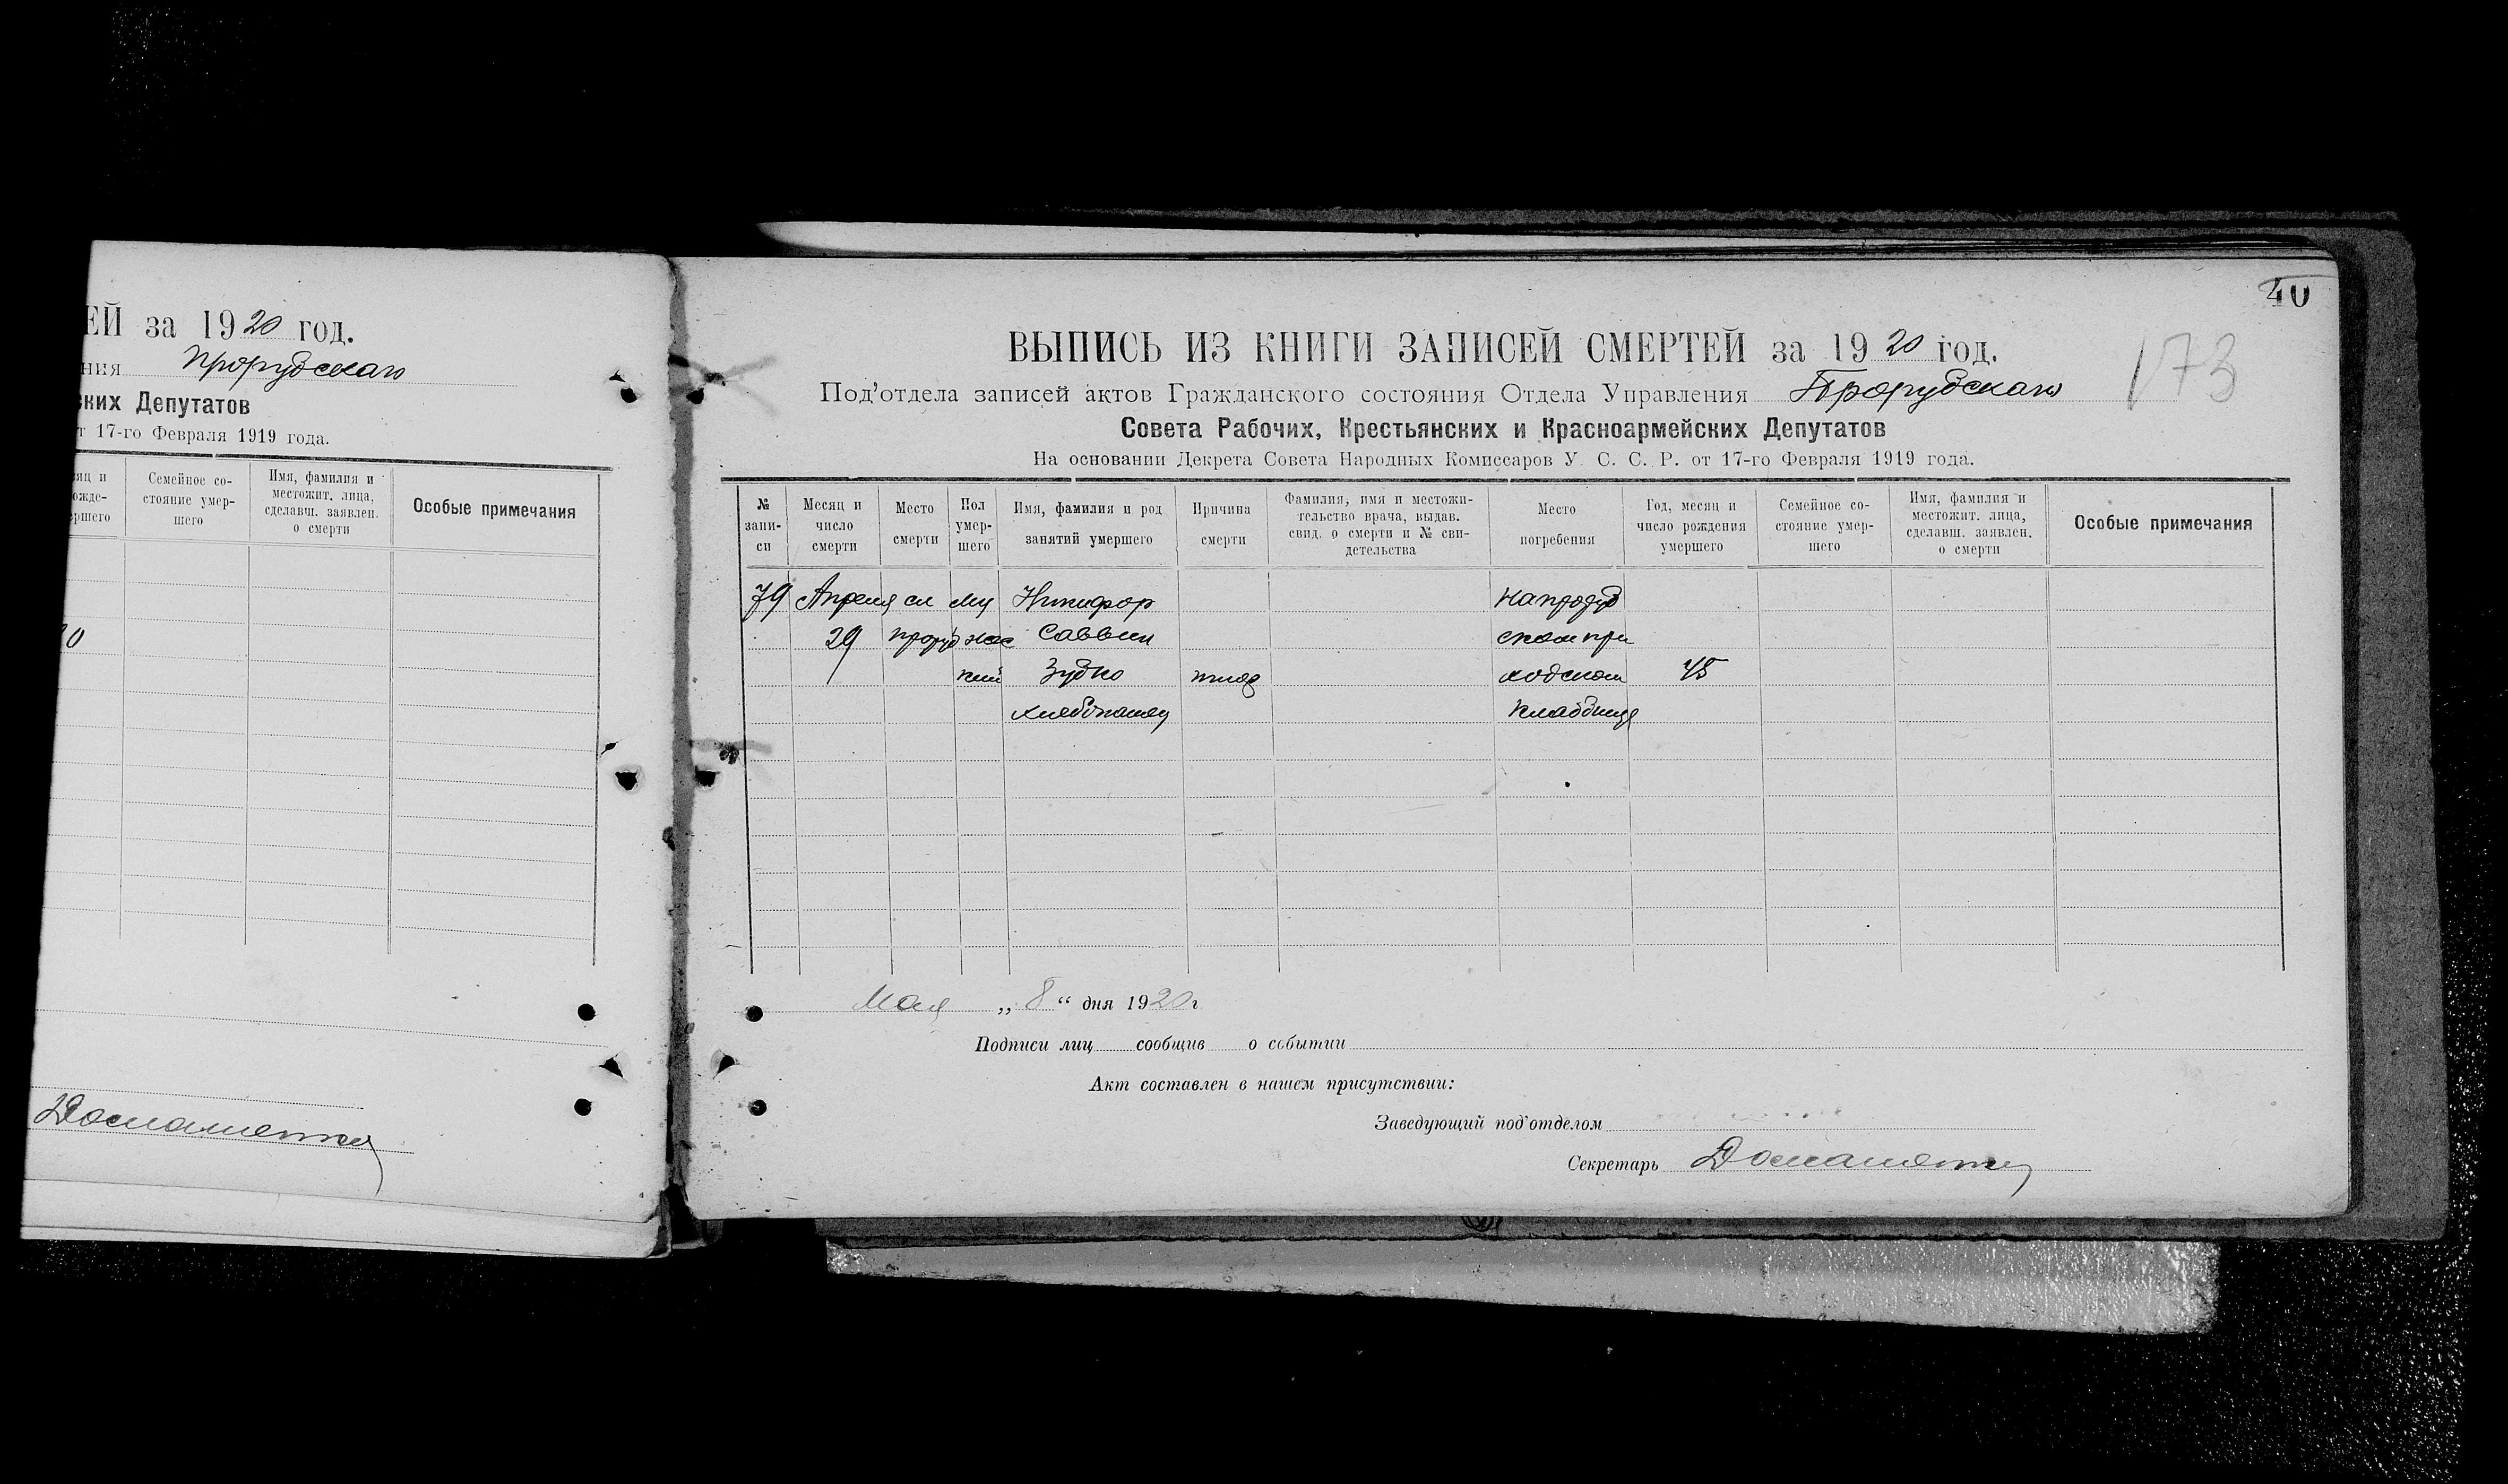 ЕЙ за 1920 год.
ния Прорубскаго
ских Депутатов
т 17-го Февраля 1919 года.
яц и
ожде-
ершего
Семейное со-
стояние умер-
шего
Имя, фамилия и
местожит. лица,
сделавш. заявлен.
о смерти
Особые примечания
Домашенко
40
173
ВЫПИСЬ ИЗ КНИГИ ЗАПИСЕЙ СМЕРТЕЙ за 1920 год.
Под'отдела записей актов Гражданского состояния Отдела Управления Прорубскаго
Совета Рабочих, Крестьянских и Красноармейских Депутатов
На основании Декрета Совета Народных Комиссаров У. С. С. Р. от 17-го Февраля 1919 года.
№
запи-
си
Месяц и
число
смерти
Место
смерти
Пол
умер-
шего
Имя, фамилия и род
занятий умершего
Причина
смерти
Фамилия, имя и местожи-
тельство врача, выдав.
свид. о смерти и № сви-
детельства
Место
погребения
Год, месяц и
число рождения
умершего
Семейное со-
стояние умер-
шего
Имя, фамилия и
местожит. лица,
сделавш. заявлен.
о смерти
Особые примечания
79 Апреля сл Му Никифор на проруб
29 проруб жес Саввин ском при
кий Зубко тиф ходском 45
хлебопашец кладбище
Мая „ 8 “ дня 1920 г
Подписи лиц сообщив о событии
Акт составлен в нашем присутствии:
Заведующий под'отделом
Секретарь Домашенко